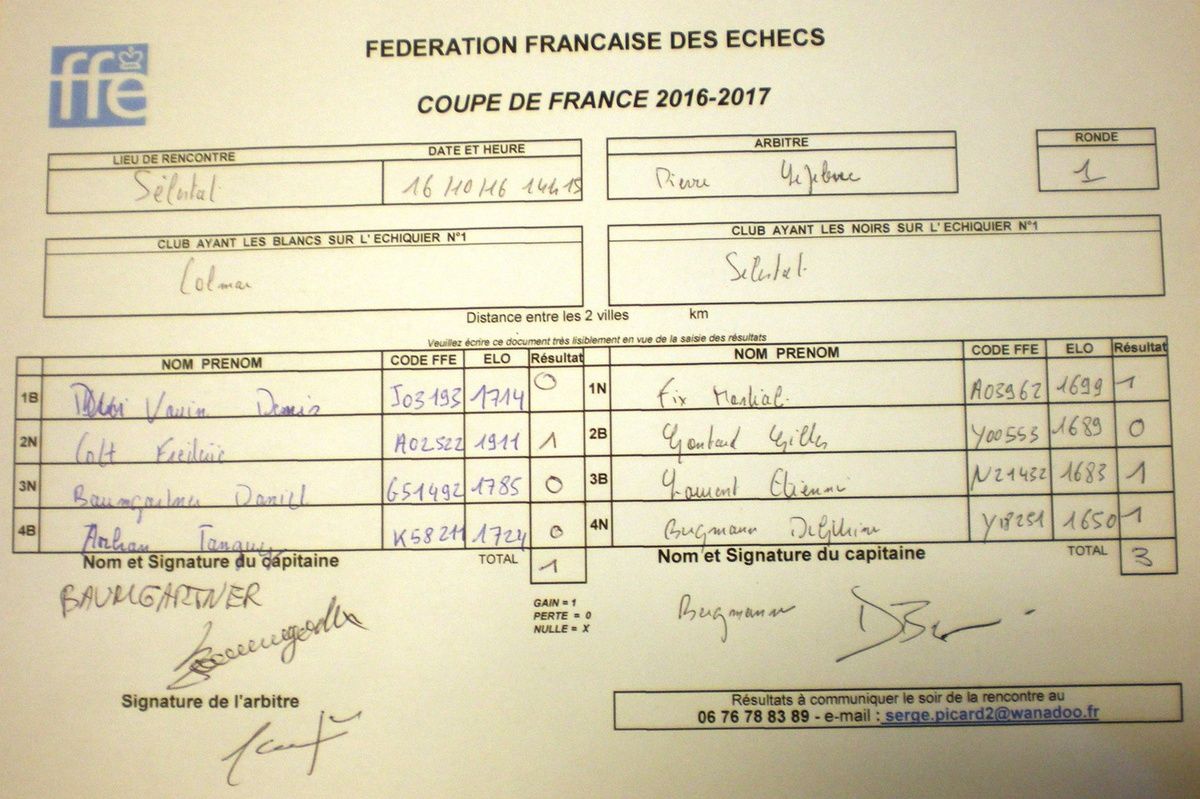 ffe
FEDERATION FRANCAISE DES ECHECS
COUPE DE FRANCE 2016-2017
LIEU DE RENCONTRE DATE ET HEURE ARBITRE RONDE
Sélestat 16/10/16 14h15 Pierre 1
CLUB AYANT LES BLANCS SUR L'ECHIQUIER N°1 CLUB AYANT LES NOIRS SUR L'ECHIQUIER N°1
Colmar Sélestat
Distance entre les 2 villes km
Veuillez écrire ce document très lisiblement en vue de la saisie des résultats
NOM PRENOM CODE FFE ELO Résultat NOM PRENOM CODE FFE ELO Résultat
1B Denis J03193 1714 0 1N Fix Martial A03962 1699 1
2N Colt Frédéric A02522 1911 1 2B Gilles Y00553 1689 0
3N Baumgartner Daniel G51492 1785 0 3B Laurent Etienne N21432 1683 1
4B Tanguy K58211 1724 0 4N Bergmann Delphine Y18251 1650 1
Nom et Signature du capitaine TOTAL 1 Nom et Signature du capitaine TOTAL 3
BAUMGARTNER Bergmann
GAIN = 1
PERTE = 0
NULLE = X
Signature de l'arbitre
Résultats à communiquer le soir de la rencontre au
06 76 78 83 89 - e-mail : serge.picard2@wanadoo.fr